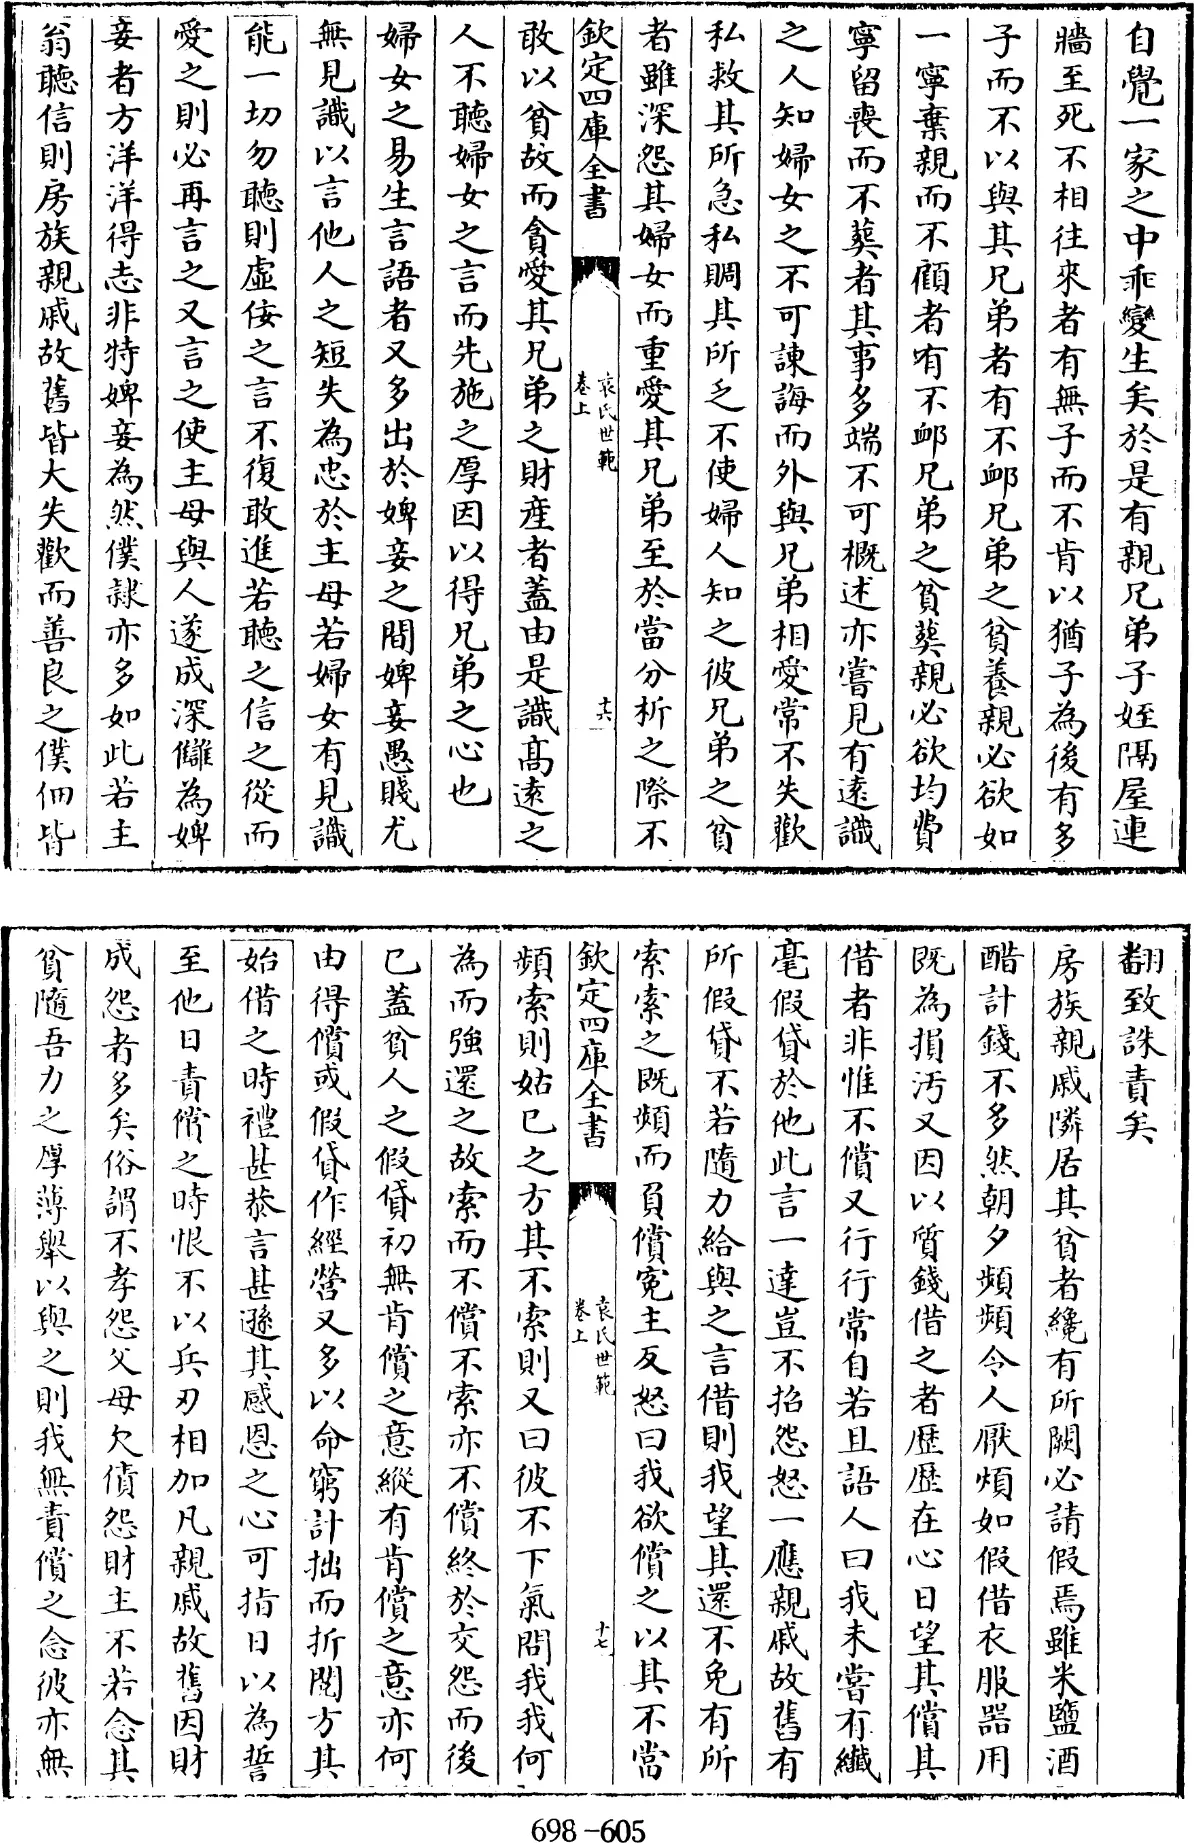 自覺一家之中乖變生矣於是有親兄弟子姪隔屋連
牆至死不相往來者有無子而不肯以猶子為後有多
子而不以與其兄弟者有不䘏兄弟之貧養親必欲如
一寧棄親而不顧者有不䘏兄弟之貧葬親必欲均費
寧留喪而不葬者其事多端不可概述亦嘗見有遠識
之人知婦女之不可諫誨而外與兄弟相愛常不失歡
私救其所急私賙其所乏不使婦人知之彼兄弟之貧
者雖深怨其婦女而重愛其兄弟至於當分析之際不
欽定四庫全書
袁氏世範
卷上
十六
敢以貧故而貪愛其兄弟之財產者蓋由是識髙遠之
人不聽婦女之言而先施之厚因以得兄弟之心也
婦女之易生言語者又多出於婢妾之間婢妾愚賤尤
無見識以言他人之短失為忠於主母若婦女有見識
能一切勿聽則虛佞之言不復敢進若聽之信之從而
愛之則必再言之又言之使主母與人遂成深讎為婢
妾者方洋洋得志非特婢妾為然僕隸亦多如此若主
翁聽信則房族親戚故舊皆大失歡而善良之僕佃皆
翻致誅責矣
房族親戚隣居其貧者纔有所闕必請假焉雖米鹽酒
醋計錢不多然朝夕頻頻令人厭煩如假借衣服器用
既為損汚又因以質錢借之者歷歷在心日望其償其
借者非惟不償又行行常自若且語人曰我未嘗有纎
毫假貸於他此言一達豈不招怨怒一應親戚故舊有
所假貸不若隨力給與之言借則我望其還不免有所
索索之既頻而負償寃主反怒曰我欲償之以其不當
欽定四庫全書
袁氏世範
卷上
十七
頻索則姑已之方其不索則又曰彼不下氣問我我何
為而強還之故索而不償不索亦不償終於交怨而後
已蓋貧人之假貸初無肯償之意縱有肯償之意亦何
由得償或假貸作經營又多以命窮計拙而折閱方其
始借之時禮甚恭言甚遜其感恩之心可指日以為誓
至他日責償之時恨不以兵刃相加凡親戚故舊因財
成怨者多矣俗謂不孝怨父母欠債怨財主不若念其
貧隨吾力之厚薄舉以與之則我無責償之念彼亦無
698-605